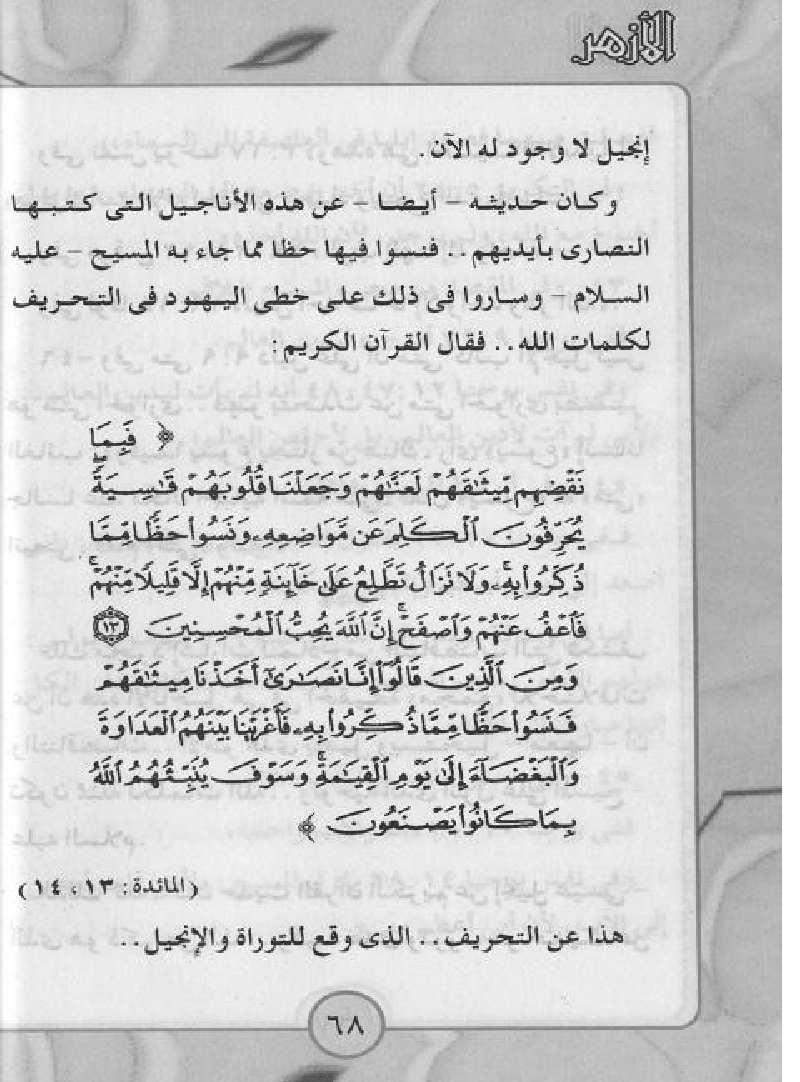 الأزهر
إنجيل لا وجود له الآن.
وكان حديثه – أيضا – عن هذه الأناجيل التى كتبها
النصارى بأيديهم .. فنسوا فيها حظا مما جاء به المسيح – عليه
السلام – وساروا فى ذلك على خطى اليهود فى التحريف
لكلمات الله .. فقال القرآن الكريم:
﴿ فَبِمَا
نَقْضِهِم مِّيثَٰقَهُمْ لَعَنَّٰهُمْ وَجَعَلْنَا قُلُوبَهُمْ قَٰسِيَةً ۖ
يُحَرِّفُونَ ٱلْكَلِمَ عَن مَّوَاضِعِهِۦ وَنَسُوا۟ حَظًّا مِّمَّا
ذُكِّرُوا۟ بِهِۦ ۚ وَلَا تَزَالُ تَطَّلِعُ عَلَىٰ خَآئِنَةٍ مِّنْهُمْ إِلَّا قَلِيلًا مِّنْهُمْ ۖ
فَٱعْفُ عَنْهُمْ وَٱصْفَحْ ۚ إِنَّ ٱللَّهَ يُحِبُّ ٱلْمُحْسِنِينَ ١٣
وَمِنَ ٱلَّذِينَ قَالُوٓا۟ إِنَّا نَصَٰرَىٰٓ أَخَذْنَا مِيثَٰقَهُمْ
فَنَسُوا۟ حَظًّا مِّمَّا ذُكِّرُوا۟ بِهِۦ فَأَغْرَيْنَا بَيْنَهُمُ ٱلْعَدَاوَةَ
وَٱلْبَغْضَآءَ إِلَىٰ يَوْمِ ٱلْقِيَٰمَةِ ۚ وَسَوْفَ يُنَبِّئُهُمُ ٱللَّهُ
بِمَا كَانُوا۟ يَصْنَعُونَ ﴾
(المائدة: ١٣، ١٤)
هذا عن التحريف .. الذى وقع للتوراة والإنجيل ..
٦٨